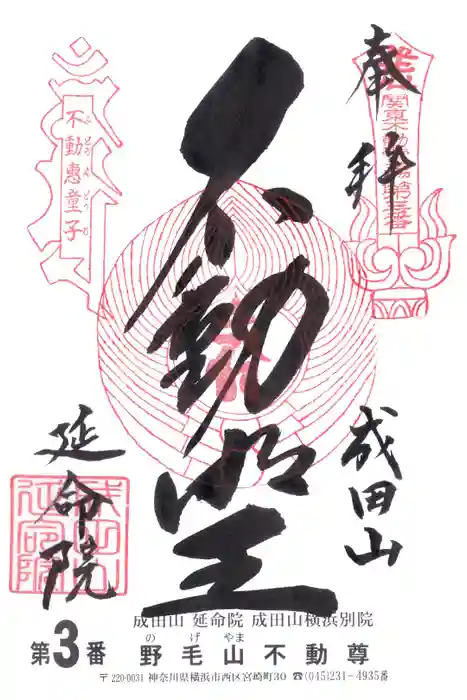 奉拝
関東不動霊場第三番
不動明王
不動惠童子
ふどうえどうじ
成田山
延命院
成田山 延命院 成田山横浜別院
のげやま
第3番 野毛山不動尊
〒220-0031 神奈川県横浜市西区宮崎町30 ☎(045)231-4935番